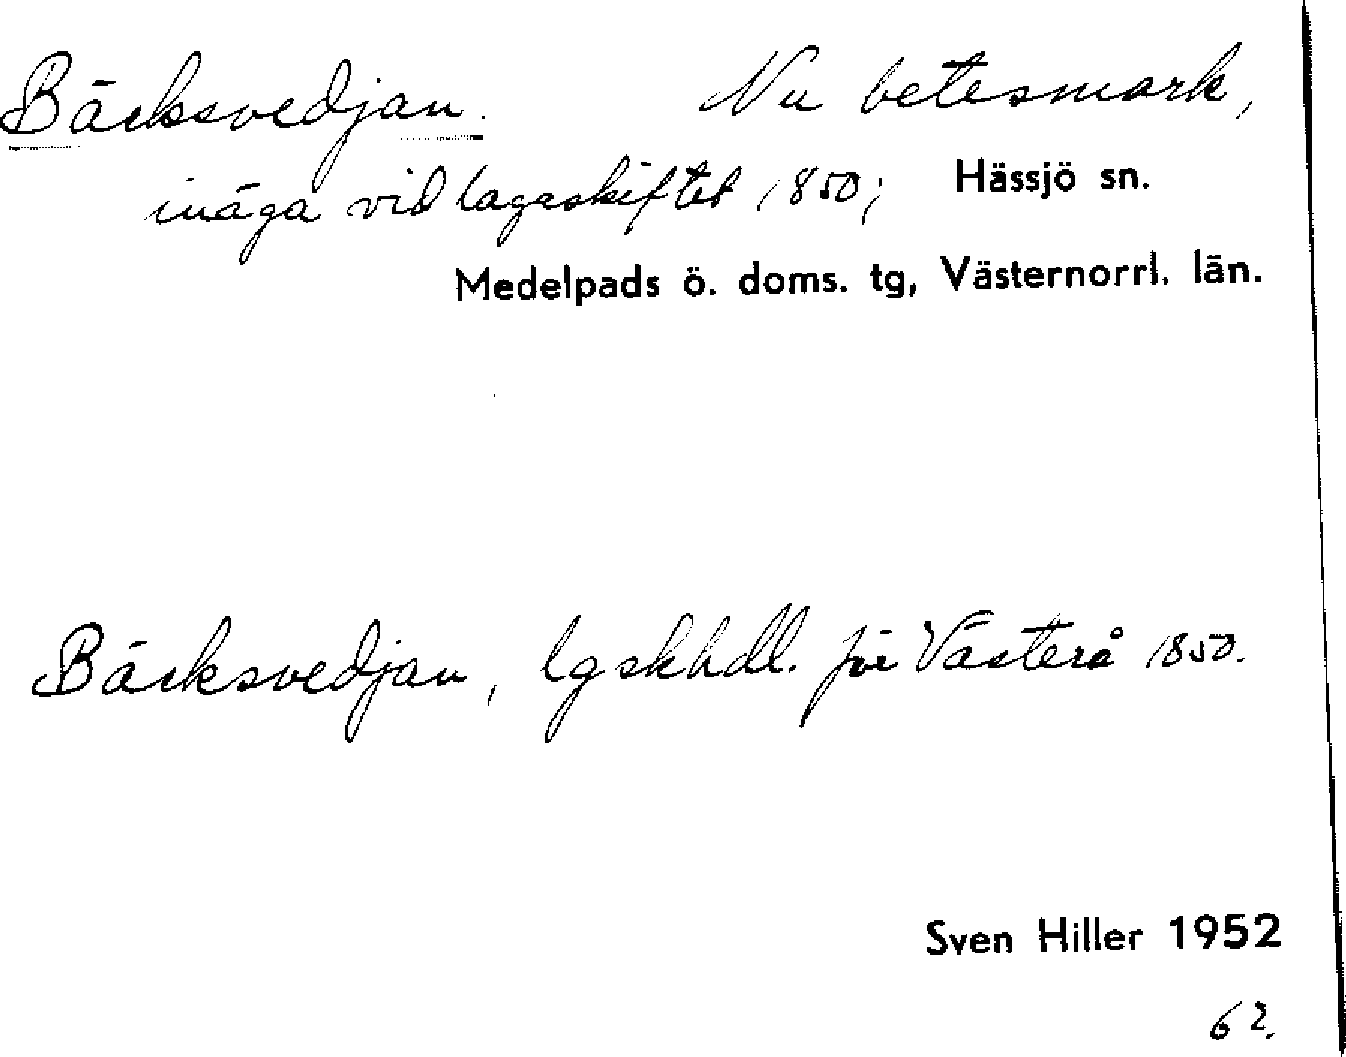 Bäcksvedjan. Nu betesmark,
inäga vid lagaskiftet 1850; Hässjö sn.
Medelpads ö. doms. tg, Västernorrl. län.
Bäcksvedjan, lgskhdl. för Västerå 1850.
Sven Hiller 1952
62.